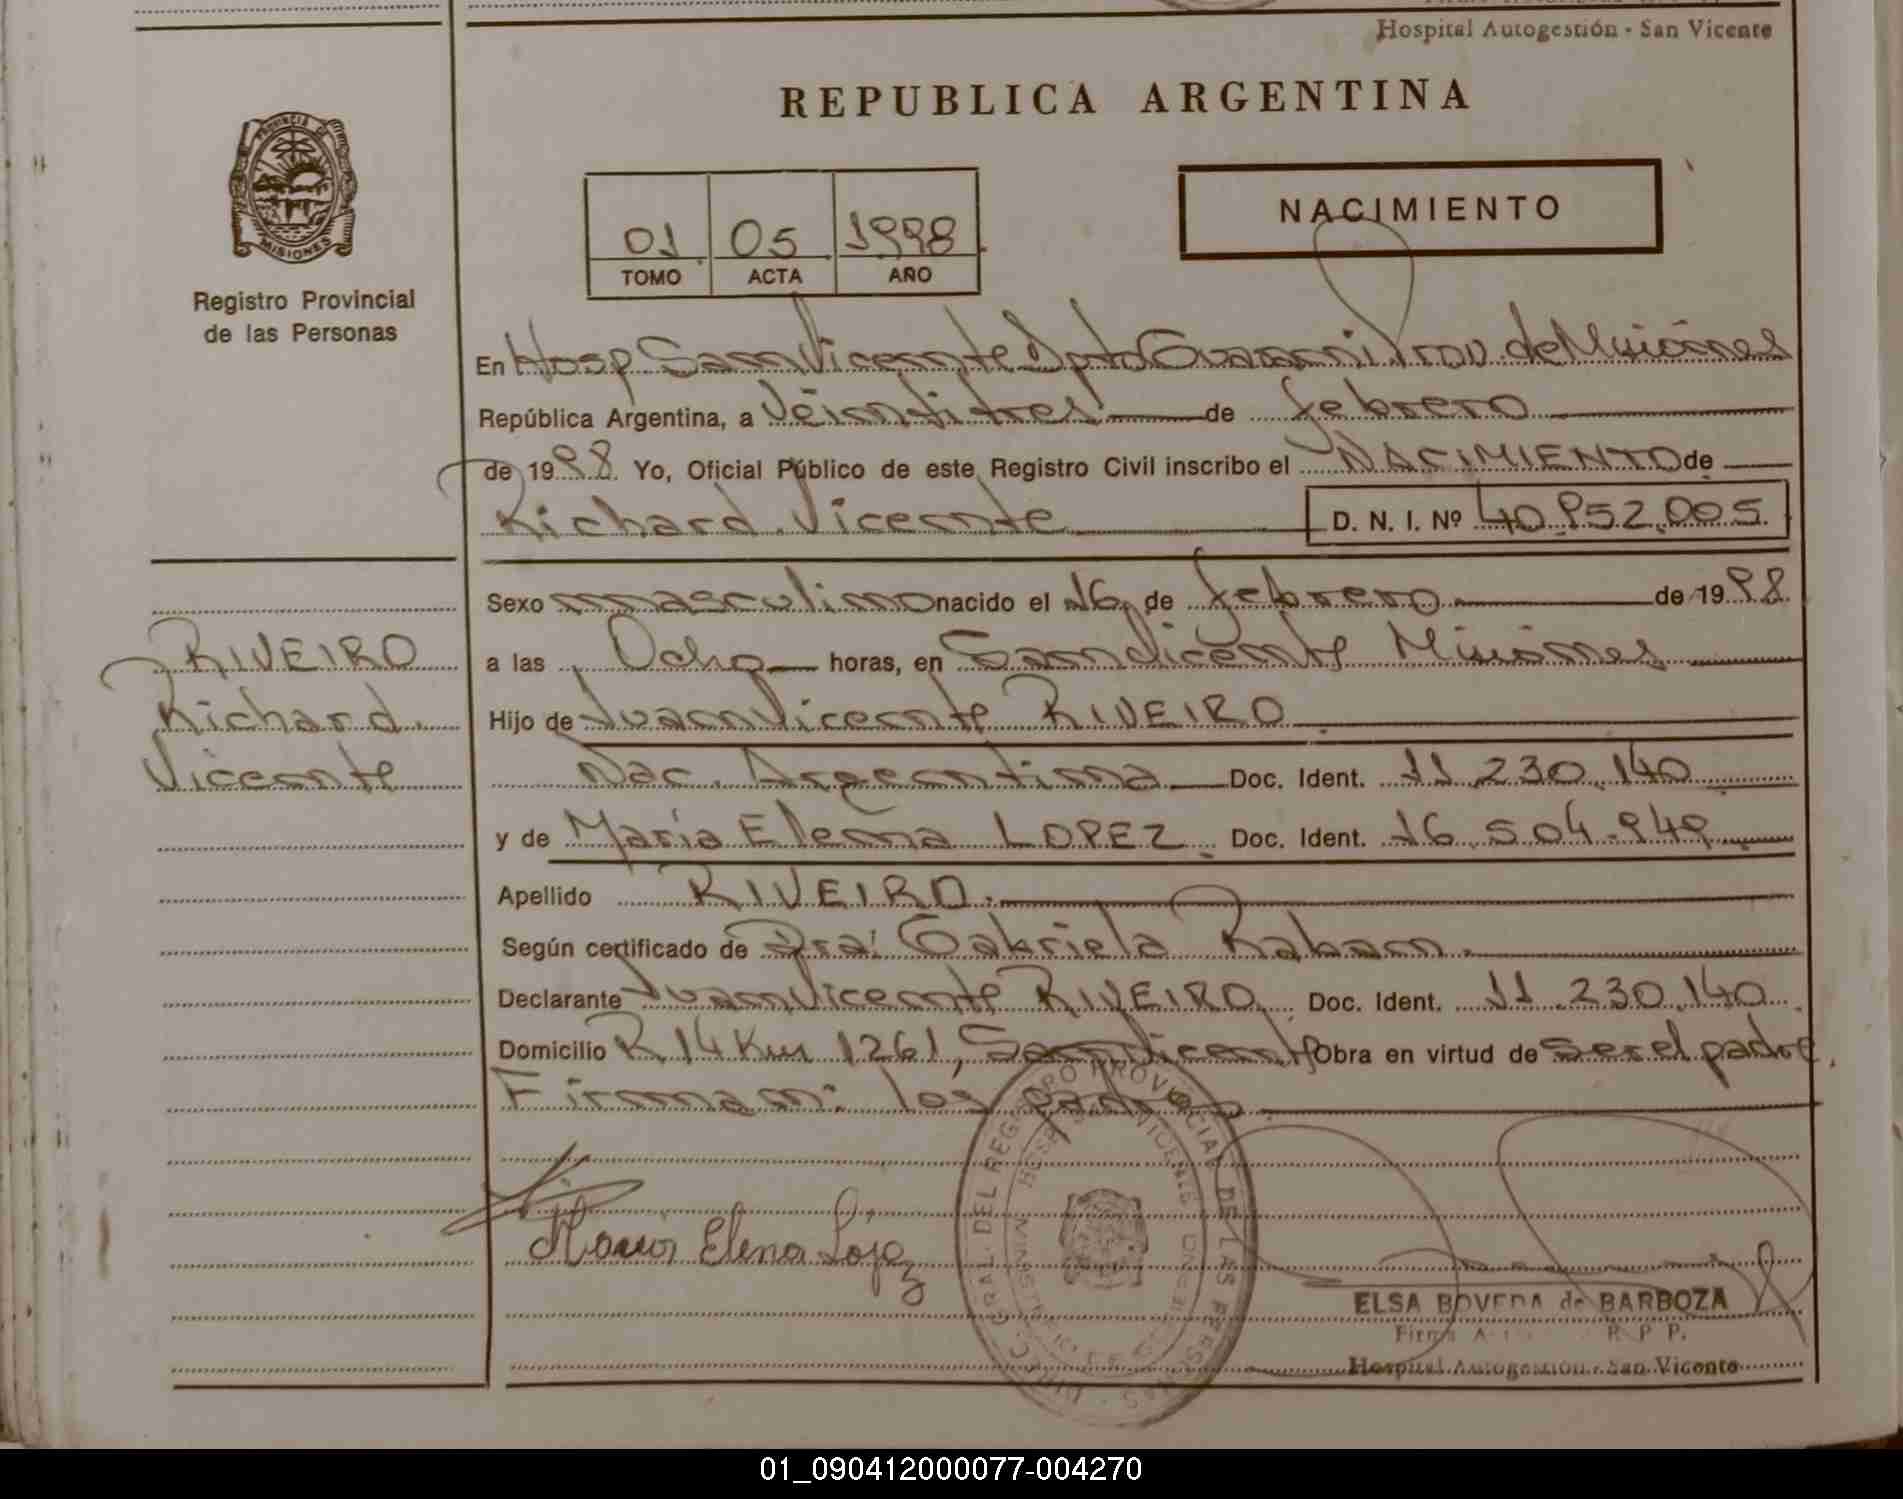 Hospital Autogestión - San Vicente
REPUBLICA ARGENTINA
PROVINCIA DE
MISIONES
Registro Provincial
de las Personas
01 05 1998
TOMO ACTA AÑO
NACIMIENTO
En Hosp San Vicente Dpto Guarani Prov. de Misiones
República Argentina, a Veintitres de febrero
de 1998 Yo, Oficial Público de este Registro Civil inscribo el NACIMIENTO de
Richard Vicente D. N. I. Nº 40.952.005
Sexo masculino nacido el 16 de febrero de 1998
a las Ocho horas, en San Vicente Misiones
Hijo de Juan Vicente RIVEIRO
Nac. Argentina Doc. Ident. 11.230.140
y de María Elena LOPEZ Doc. Ident. 16.504.949
Apellido RIVEIRO.
Según certificado de Dra: Gabriela Raban.
Declarante Juan Vicente RIVEIRO Doc. Ident. 11.230.140
Domicilio R 14 Km 1261, San Vicente Obra en virtud de ser el padre.
Firman: los padres.
RIVEIRO
Richard
Vicente
María Elena López
DIREC. GRAL. DEL REGISTRO PROVINCIAL DE LAS PERSONAS
ELSA BOVEDA de BARBOZA
R. P. P.
Hospital Autogestión - San Vicente
01_090412000077-004270